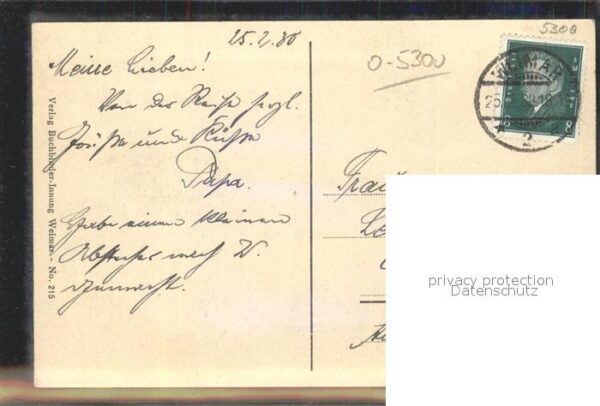 5300
25.2.30
O-5300
WEIMAR
Meine Lieben!
Von der Reise herzl.
Grüße und Küsse
Papa.
Habe einen kleinen
Abstecher nach W.
gemacht.
Frau
privacy protection
Datenschutz
Verlag Buchbinder-Innung Weimar. - No. 215